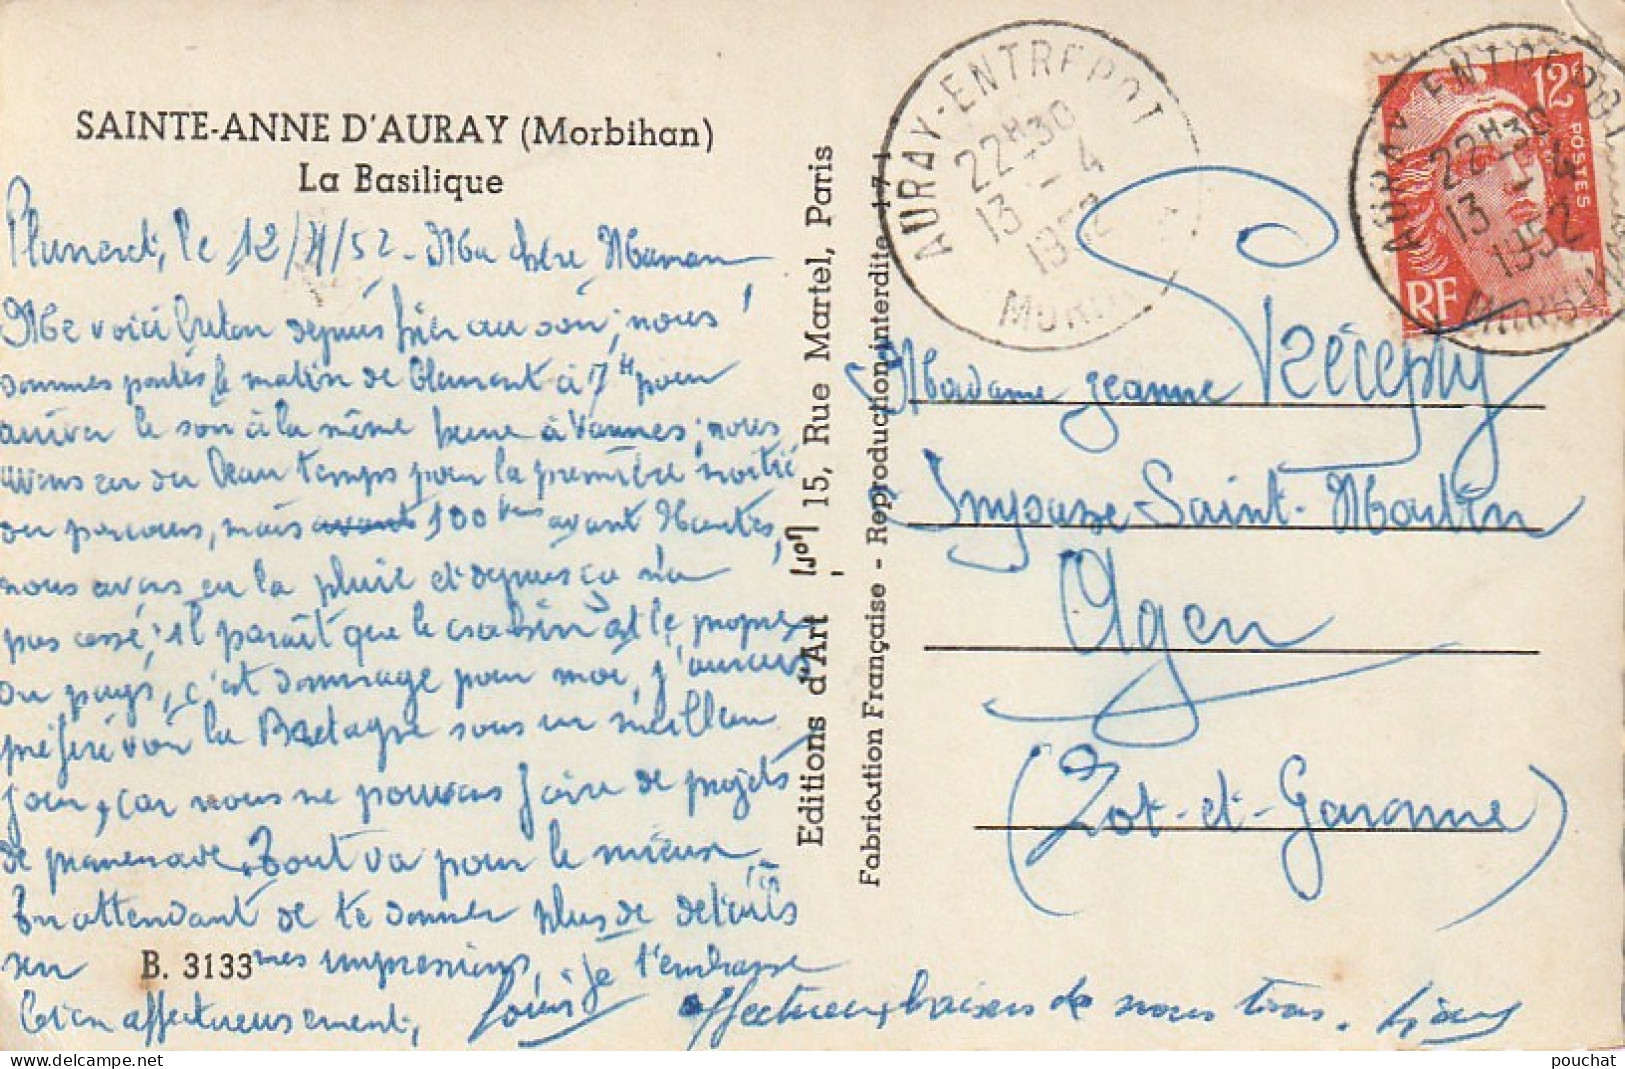 SAINTE-ANNE D'AURAY (Morbihan)
La Basilique
Plunéret, le 12/4/52 - Ma chère Maman
Me voici breton depuis hier au soir, nous
sommes partis le matin de Clamart à 7H pour
arriver le soir à la même heure à Vannes; nous
avons eu du beau temps pour la première moitié
du parcours, mais avant 100 kms avant Nantes,
nous avons eu la pluie et depuis ça n'a
pas cessé; il paraît que le crachin est le propre
du pays, c'est dommage pour moi, j'aurais
préféré voir la Bretagne sous un meilleur
jour, car nous ne pouvons faire de projets
de promenade. Tout va pour le mieux,
En attendant de te donner plus de détails
sur mes impressions, je t'embrasse
bien affectueusement, Louis
affectueux baisers de nous trois.
B. 3133
Editions d'Art 15, Rue Martel, Paris
Fabrication Française - Reproduction interdite 17-1
AURAY-ENTREPOT
22H30
13 - 4
1952
MORBIHAN
AURAY-ENTREPOT
22H30
13 - 4
1952
MORBIHAN
12F
POSTES
RF
Madame Jeanne
Impasse Saint-Martin
Agen
(Lot-et-Garonne)
pouchat